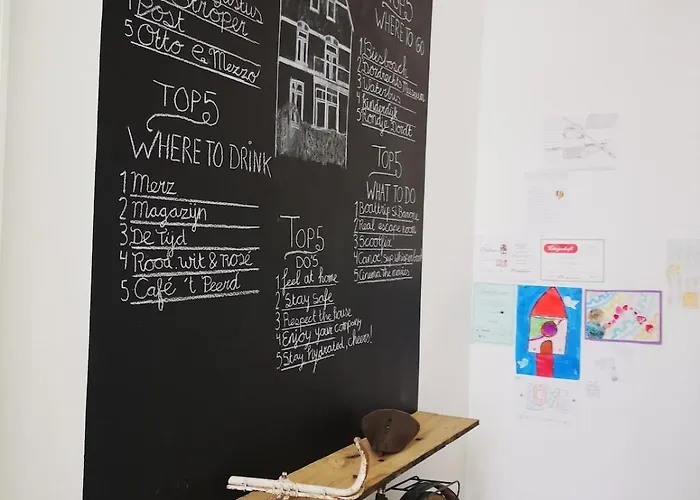 Ströper
Post
5 Otto e Mezzo
TOP 5
WHERE TO DRINK
1 Merz
2 Magazijn
3 De Tijd
4 Rood wit & rosé
5 Café 't Peerd
TOP 5
DO'S
1 feel at home
2 Stay safe
3 Respect the house
4 Enjoy your company
5 Stay hydrated, cheers!
TOP 5
WHERE TO GO
1 Biesbosch
2 Dordrechts Museum
3 Waterbus
4 Kinderdijk
5 Rondje Dordt
TOP 5
WHAT TO DO
1 Boattrip
2 Real escape room
3 Scootfix
4 Canoe, Sup
5 Cinema The movies